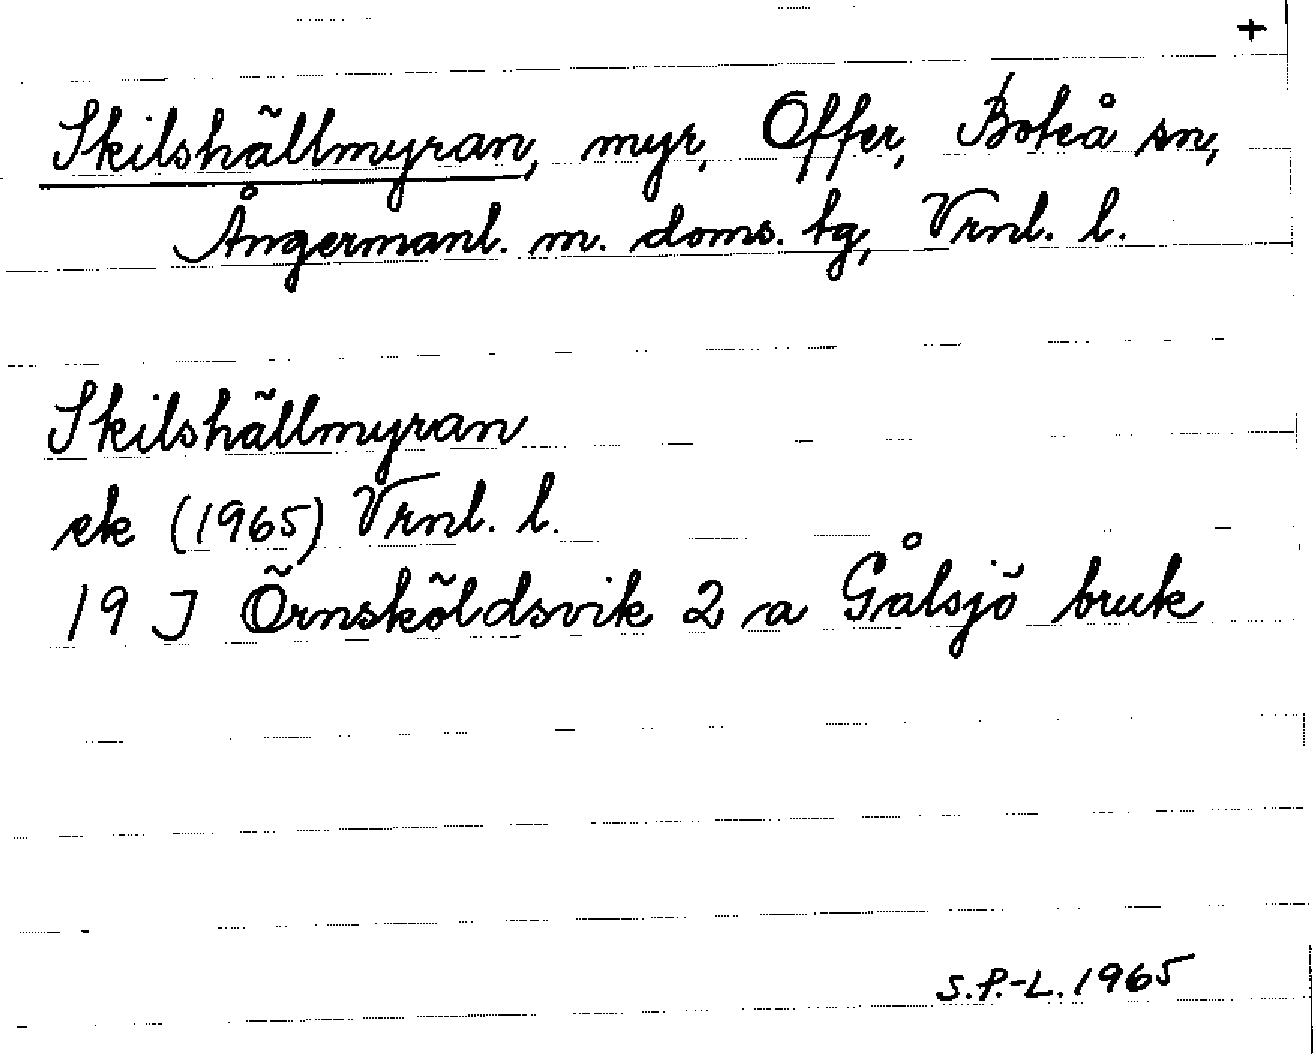 +
Skilshällmyran, myr, Offer, Boteå sn,
Ångermanl. m. doms. tg, Vrnl. l.
Skilshällmyran
ek (1965) Vrnl. l.
19 J Örnsköldsvik 2 a Gålsjö bruk
S.P.-L. 1965